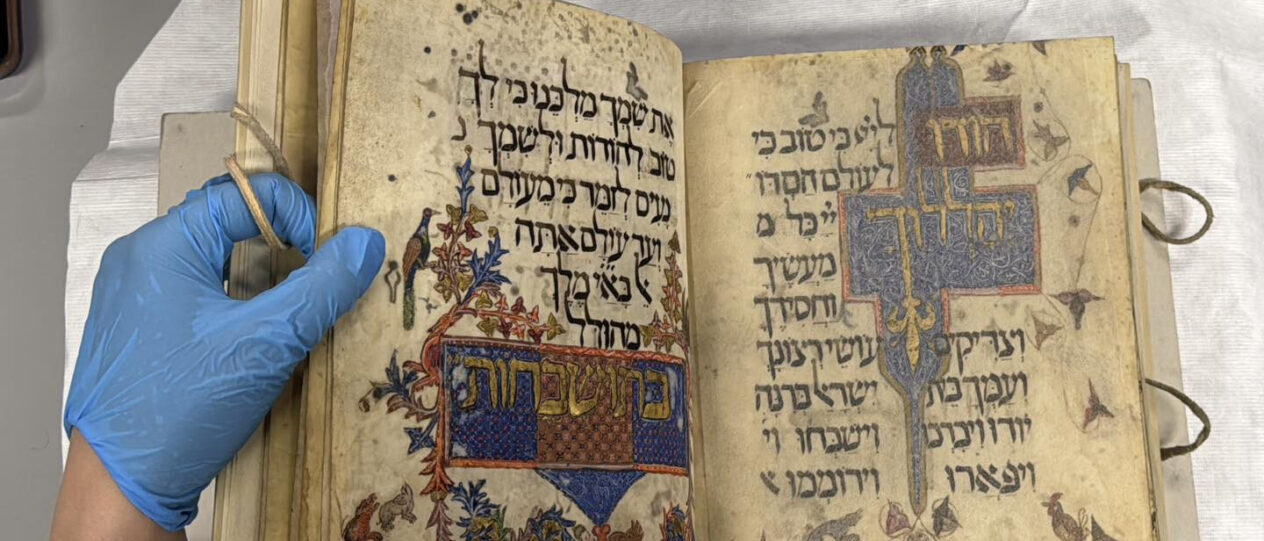 הודו
ליי כי טוב כי
לעולם חסדו
יהללוך
יי כל מ
מעשיך
וחסידך
וצדיקים עושי רצונך
ועמך בית ישראל ברנה
יודו ויברכו וישבחו וי
ויפארו וירוממו א
את שמך מלכנו כי לך
טוב להודות ולשמך נ
נעים לזמר כי מעולם
ועד עולם אתה
באיי מלך
מהולל
בתושבחות